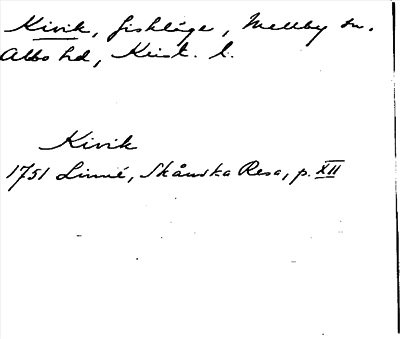 Kivik, fiskläge, Mellby sn.
Albo hd, Krist. l.
Kivik
1751 Linné, Skånska Resa, p. XII